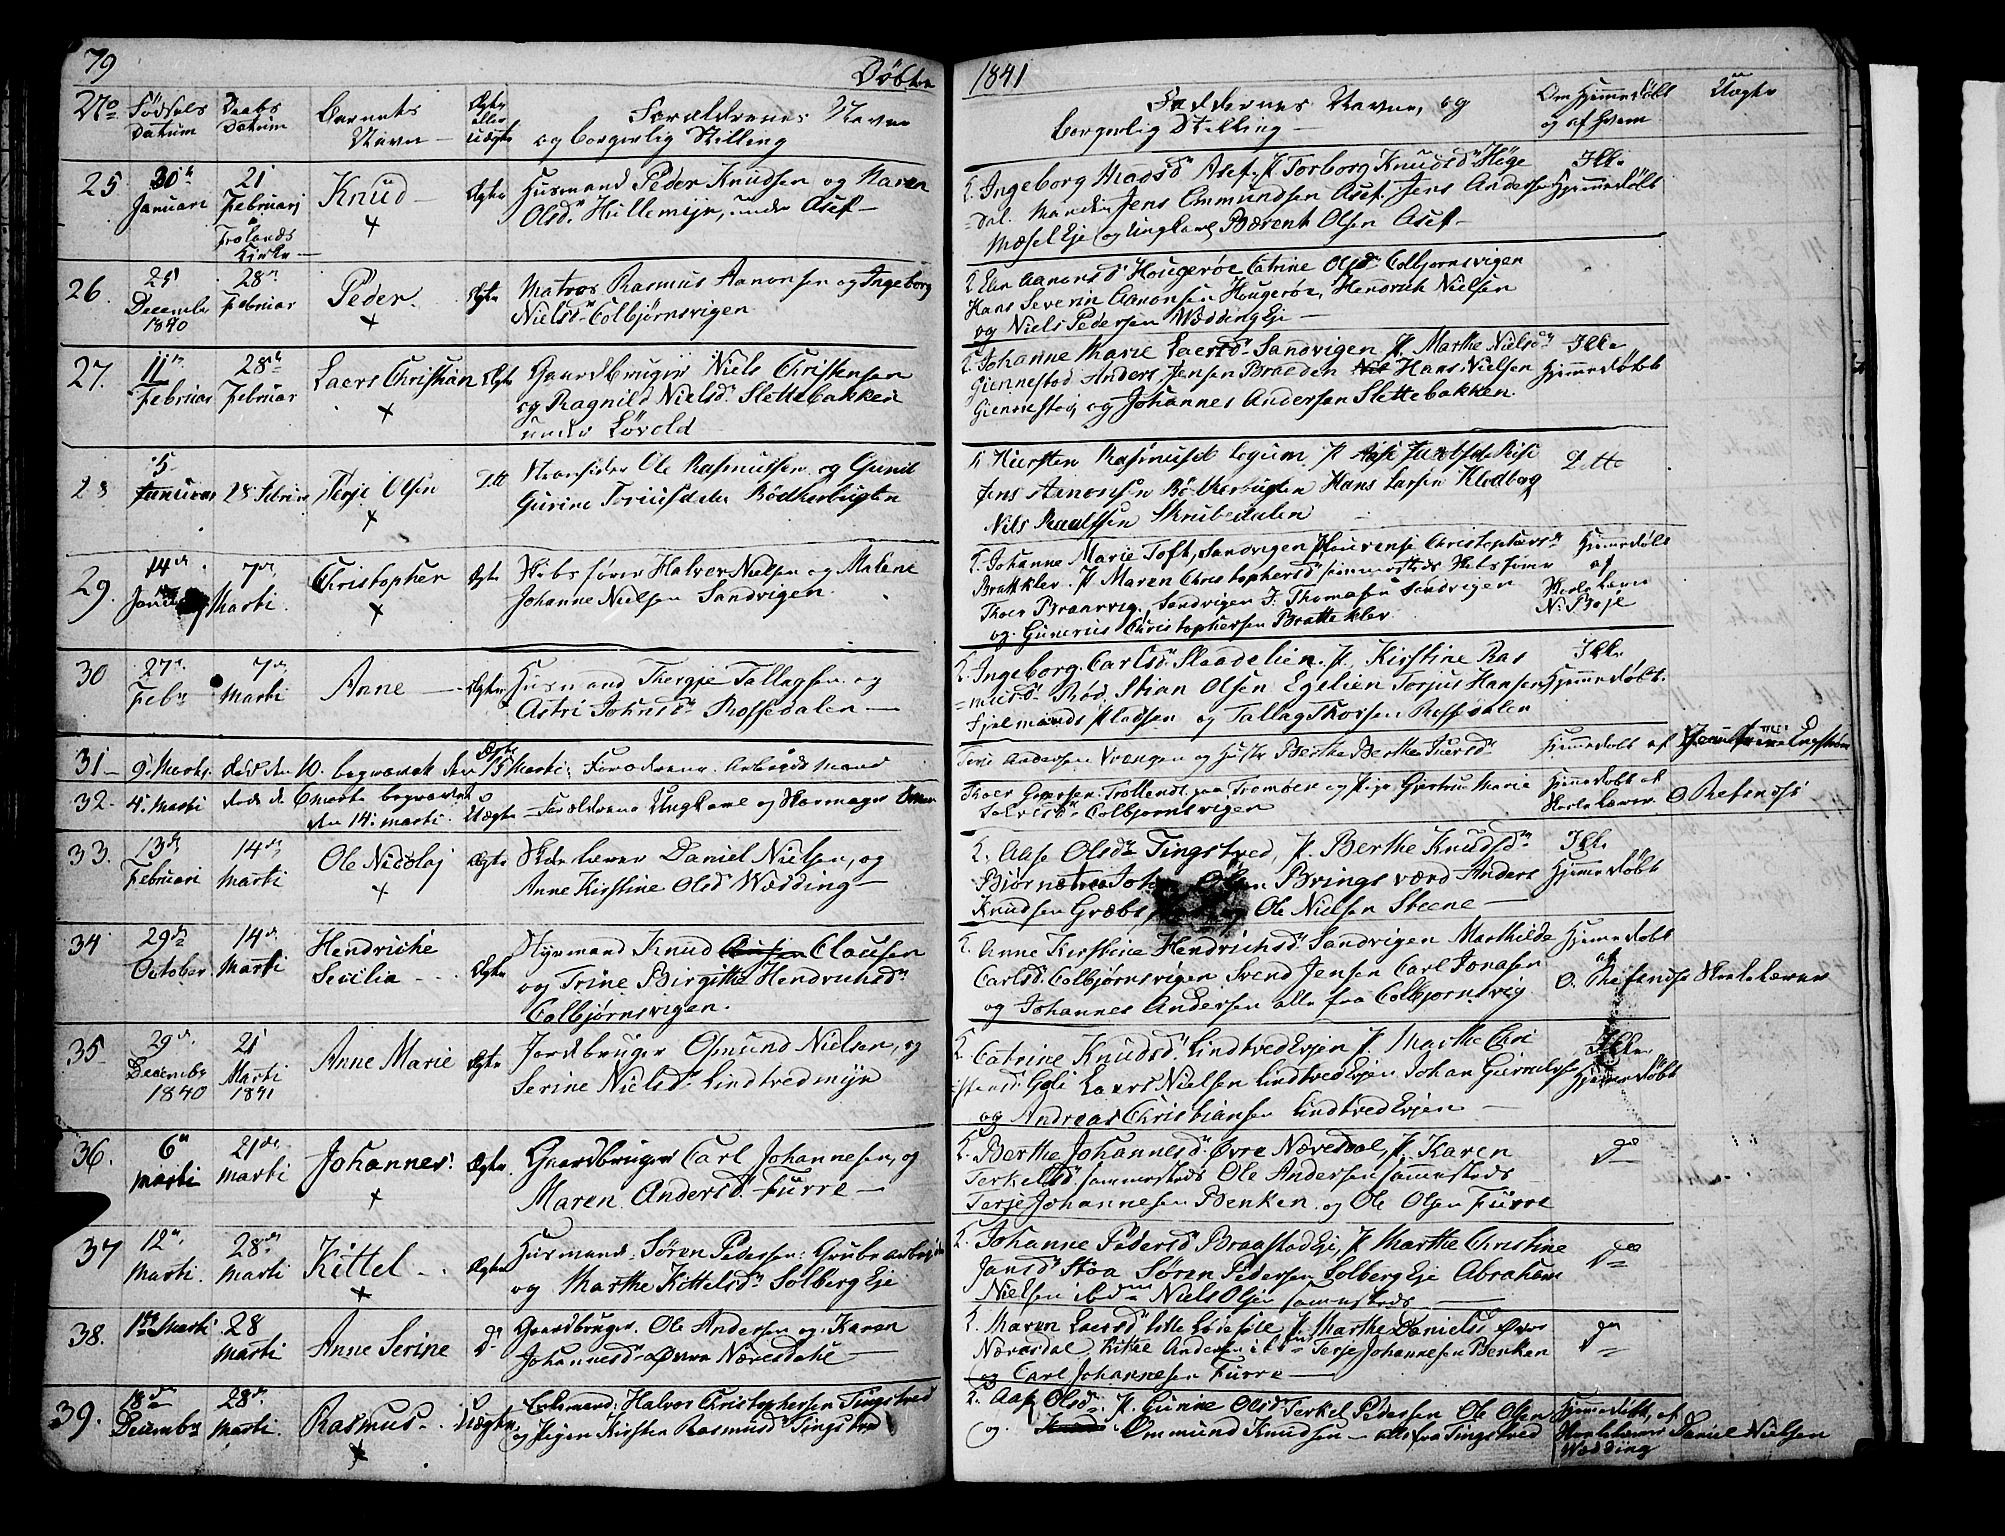 79 Døbte 1841
No Fødsels Datum Daabs Datum Barnets Navn Ægte eller Uægte Forældrenes Navne og borgerlig Stilling
Faddernes Navne, og borgerlig Stilling Om Hjemmedøbt og af hvem Uægte
25 30te Januari 21 Februarj i Frolands Kirke Knud Ægte Husmand Peder Knudsen og Maren
Olsdr Hullemijr, under Aset
K. Ingeborg Madsdr Aset P. Torborg Knudsdr Høge
=dal. Manden Jens Emmundsen Aset, Jens Andersen
Mæsel Eje og Ungkarl Bærent Olsen Aset
Ikke Hjemmedøbt
26. 25 December 1840 28de Februar Peder Ægte Matros Rasmus Aanonsen og Ingeborg
Nielsdr Colbjørnsvigen
K Elen Aanonsdr Hougerøe Catrine Olsdr Colbjørnsvigen
Hans Severin Aanonsen Hougerøe, Hendrich Nielsen
og Niels Pedersen Wædding Eje
27. 11te Februar 28de Februar Laers Christian Ægte Gaardbruger Niels Christensen
og Ragnild Nielsdr Slettebakken
under Løvold
K Johanne Marie Laersdr Sandvigen P. Marthe Nielsdr
Giennestad Anders Jensen Braeden Hans Nielsen
Giennestad og Johannes Andersen Slettebakken
Ikke Hjemmedøbt
28 5 Januar 28 Februar Terje Olsen Dtt Ole Rasmussen og Gunil
Gurine Bødkerbugten
K Kiersten Rasmusdr P. Aase
Jens Aanonsen Bødkerbugten Hans Larsen Kledborg
Nils Raalfsen Skrubedalen
Ditto
29. 14de Januar 7de Marti Christopher Ægte Skibsfører Halver Nielsen og Malene
Johanne Nielsen Sandvigen
K. Johanne Marie Toft, Sandvigen, P. Christophersdr
Brattklev. P. Maren Christophersdr sammesteds Skibsfører
Thoer Sandvigen J. Thomasen Sandvigen
og Gunerius Christophersen Bratteklev
Hjemmedøbt af Skolelærer N. Boje
30 27de Febr 7de Marti Anne Ægte Husmand Thergje Tallagsen og
Astri Johnsdr Rossedalen
K Ingeborg Carlsdr Slaadelien. P. Kirstine Ras
=musdr Rød, Stian Olsen Egelien Torjus Hansen
Fjelmands Pladsen og Tallag Thorsen Rossedalen
Ikke Hjemmedøbt
31 9. Marti, død den 10. begravet den 15 Marti: Ægte Forældrene Arbeidsmand
Terje Andersen Vrengen og Hustr Berthe Berthe Iversdr Hjemmedøbt af
32 4. Marti døde d. 6 Marti begravet den 14. Marti Uægte Forældrene Ungkarl og Skomager
Thoer Gregersen Trollenes paa Tromøen og Pige Gjertrue Marie
Salvesdr Colbjornsvigen
Hjemmedøbt af Skolelærer O. Refendsi
33. 13de Februari 14de Marti Ole Nicolaj Ægte Skolelærer Daniel Nielsen, og
Anne Kirstine Olsdr Wædding
K. Aase Olsdr Tingstved, P. Berthe Knudsdr
Biørnetræ Johan Olsen Bringsværd Anders
Knudsen Græbs og Ole Nielsen Steene
Ikke Hjemmedøbt
34 29de October 14de Marti Hendriche Secilia Ægte Styrmand Knud Clausen
og Trine Birgitte Hendrichsdr
Colbjørnsvigen.
K. Anne Kirstine Hendrichsdr Sandvigen Mathilde
Carlsdr Colbjørnsvigen Svend Jensen Carl Jonasen
og Johannes Andersen alle fra Colbjornsvig
Hjemmedøbt af O. Refendsi Skolelærer
35 29de December 1840 21 Marti 1841 Anne Marie Ægte Jordbruger Osmund Nielsen, og
Serine Nielsdr Lindtvedmijr
K Catrine Knudsdr LindtvedEjen P. Marthe Chri
=stensdr Goli Laers Nielsen LindtvedEjen Johan
og Andreas Christjansen LindtvedEjen
Ikke Hjemmedøbt
36. 6te Marti 21de Marti Johannes Ægte Gaardbruger Carl Johannesen, og
Maren Andersdr Furre
K. Berthe Johannesdr Øvre Næresdal, P. Karen
Terkelsdr sammesteds Ole Andersen sammesteds
Terje Johannesen Benken og Ole Olsen Furre
do
37 12te Marti. 28de Marti Kittel Ægte Husmand: Søren Pedersen: Grubearbejder
og Marthe Kittelsdr Solberg Eje
K. Johanne Pedersdr Braastad Eje, P. Marthe Christine
Jansdr Stoa Søren Pedersen Solberg Eje Abraham
Nielsen ibdm Niels Olsen sammesteds
do
38. 1ste Marti 28 Marti Anne Serine Do Gaardbruger. Ole Andersen og Karen
Johannesdr Øvre Næresdahl
K. Maren Laersdr Lille P. Marthe Danielsdr Øvre
Næresdal, Andersen ibd. Terje Johannesen Benken
og Carl Johannesen Furre
do
39. 18de December 28de Marti. Rasmus Uægte Enkemand: Halvor Christophersen Tingstved
og Pigen Kirsten Rasmusdr Tingstved
K. Aase Olsdr P. Gunne Olsdr Terkel Pedersen Ole Olsen
og Ommund Knudsen alle fra Tingstved
Hjemmedøbt, af Skolelærer Daniel Nielsen Wædding